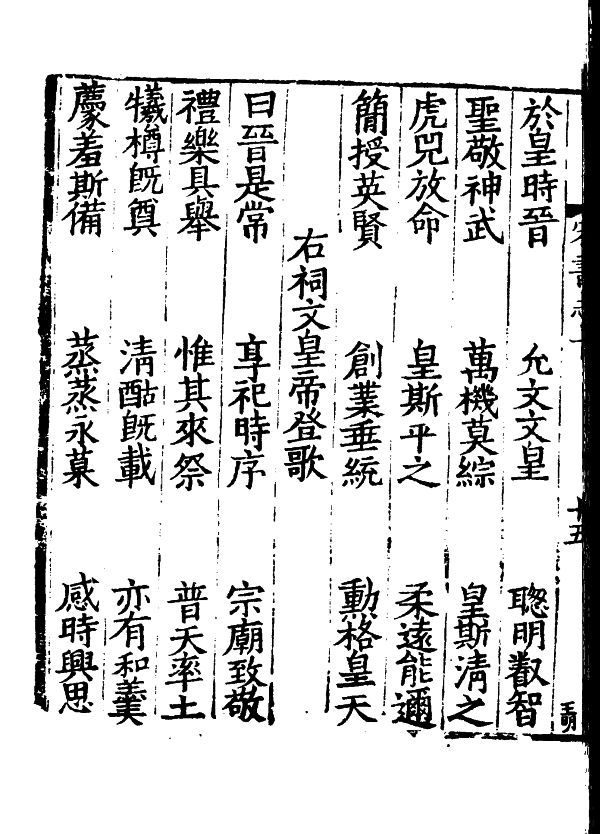 宋書志十
十五
於皇時晉　允文文皇　聰明叡智
聖敬神武　萬機莫綜　皇斯清之
虎兕放命　皇斯平之　柔遠能邇
簡授英賢　創業垂統　勲格皇天
右祠文皇帝登歌
曰晉是常　享祀時序　宗廟致敬
禮樂具舉　惟其來祭　普天率土
犧樽旣奠　清酤旣載　亦有和羹
薦羞斯備　蒸蒸永慕　感時興思